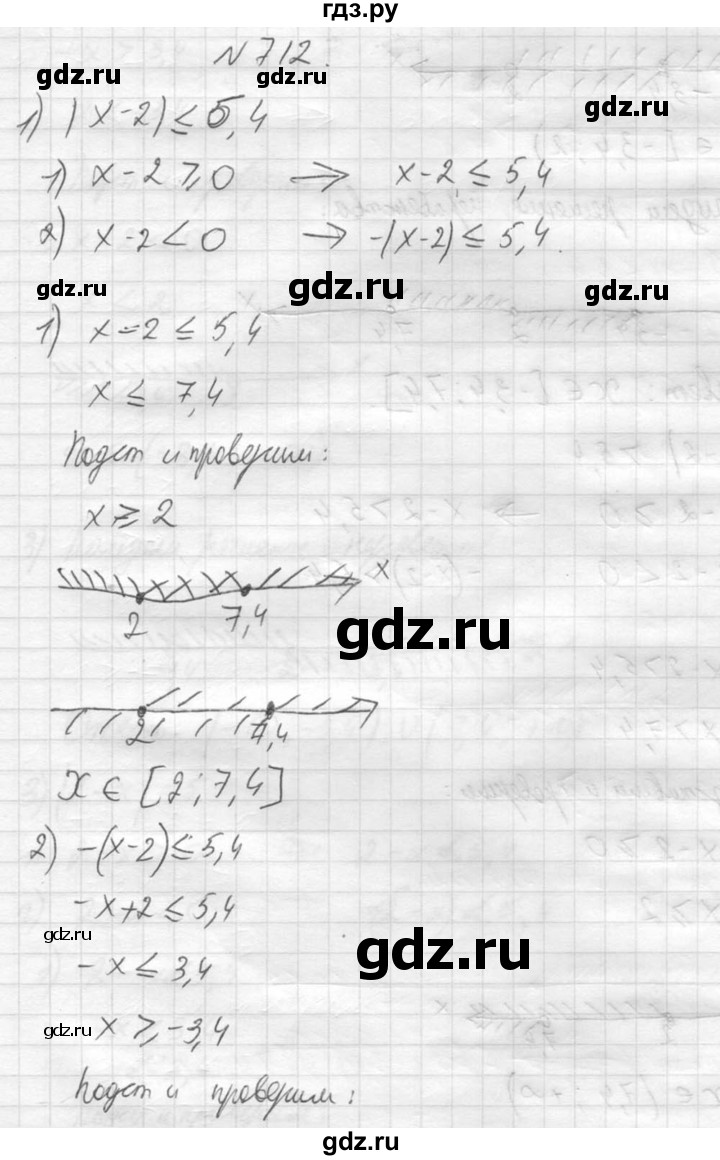 гдз.ру
N 712.
gdz.ru gdz.ru
1) |x-2| ≤ 5,4
1) x-2 ⩾ 0 → x-2 ≤ 5,4
2) x-2 < 0 → -(x-2) ≤ 5,4.
gdz.ru gdz.ru gdz.ru
1) x-2 ≤ 5,4
x ≤ 7,4
Подст и проверим:
x ⩾ 2
x
2 7,4
gdz.ru
2 7,4
x ∈ [2; 7,4]
2) -(x-2) ≤ 5,4
-x+2 ≤ 5,4
gdz.ru gdz.ru
-x ≤ 3,4
gdz.ru x ⩾ -3,4
Подст и проверим:
gdz.ru